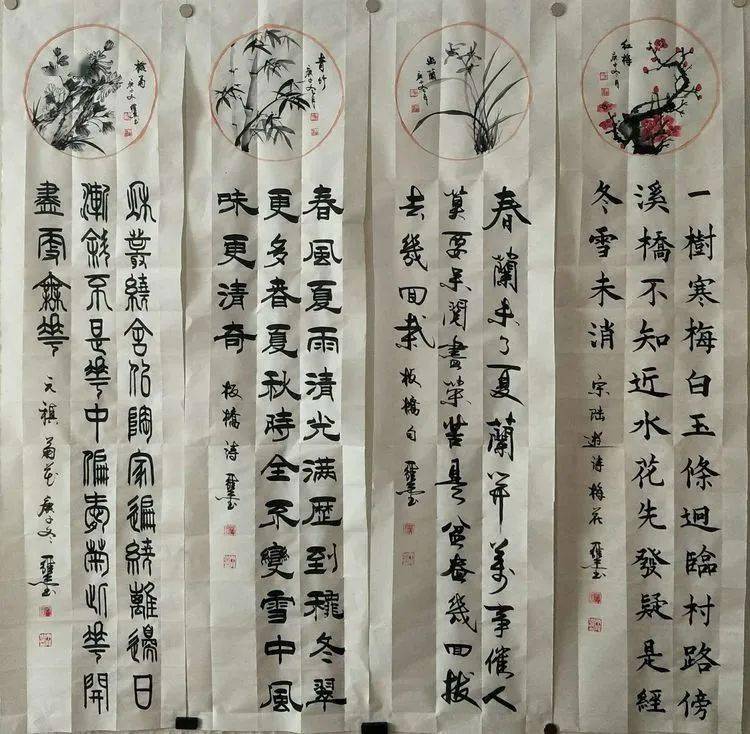 红梅
庚子冬月
一樹寒梅白玉條迥臨村路傍
溪橋不知近水花先發疑是經
冬雪未消
宋陆遊诗梅花
幽蘭
庚子冬月
春蘭未了夏蘭開萬事催人
莫要呆閱盡榮苦是盆盎幾回拔
去幾回栽 板橋句
青竹
庚子冬月
春風夏雨清光满歷到穠冬翠
更多春夏秋時全不變雪中風
味更清奇 板橋诗
秋菊
秋叢繞舍似陶家遍繞籬邊日
漸斜不是花中偏愛菊此花開
盡更無花 元稹菊花庚子冬